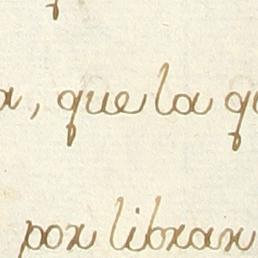 a, que la qu
por librar